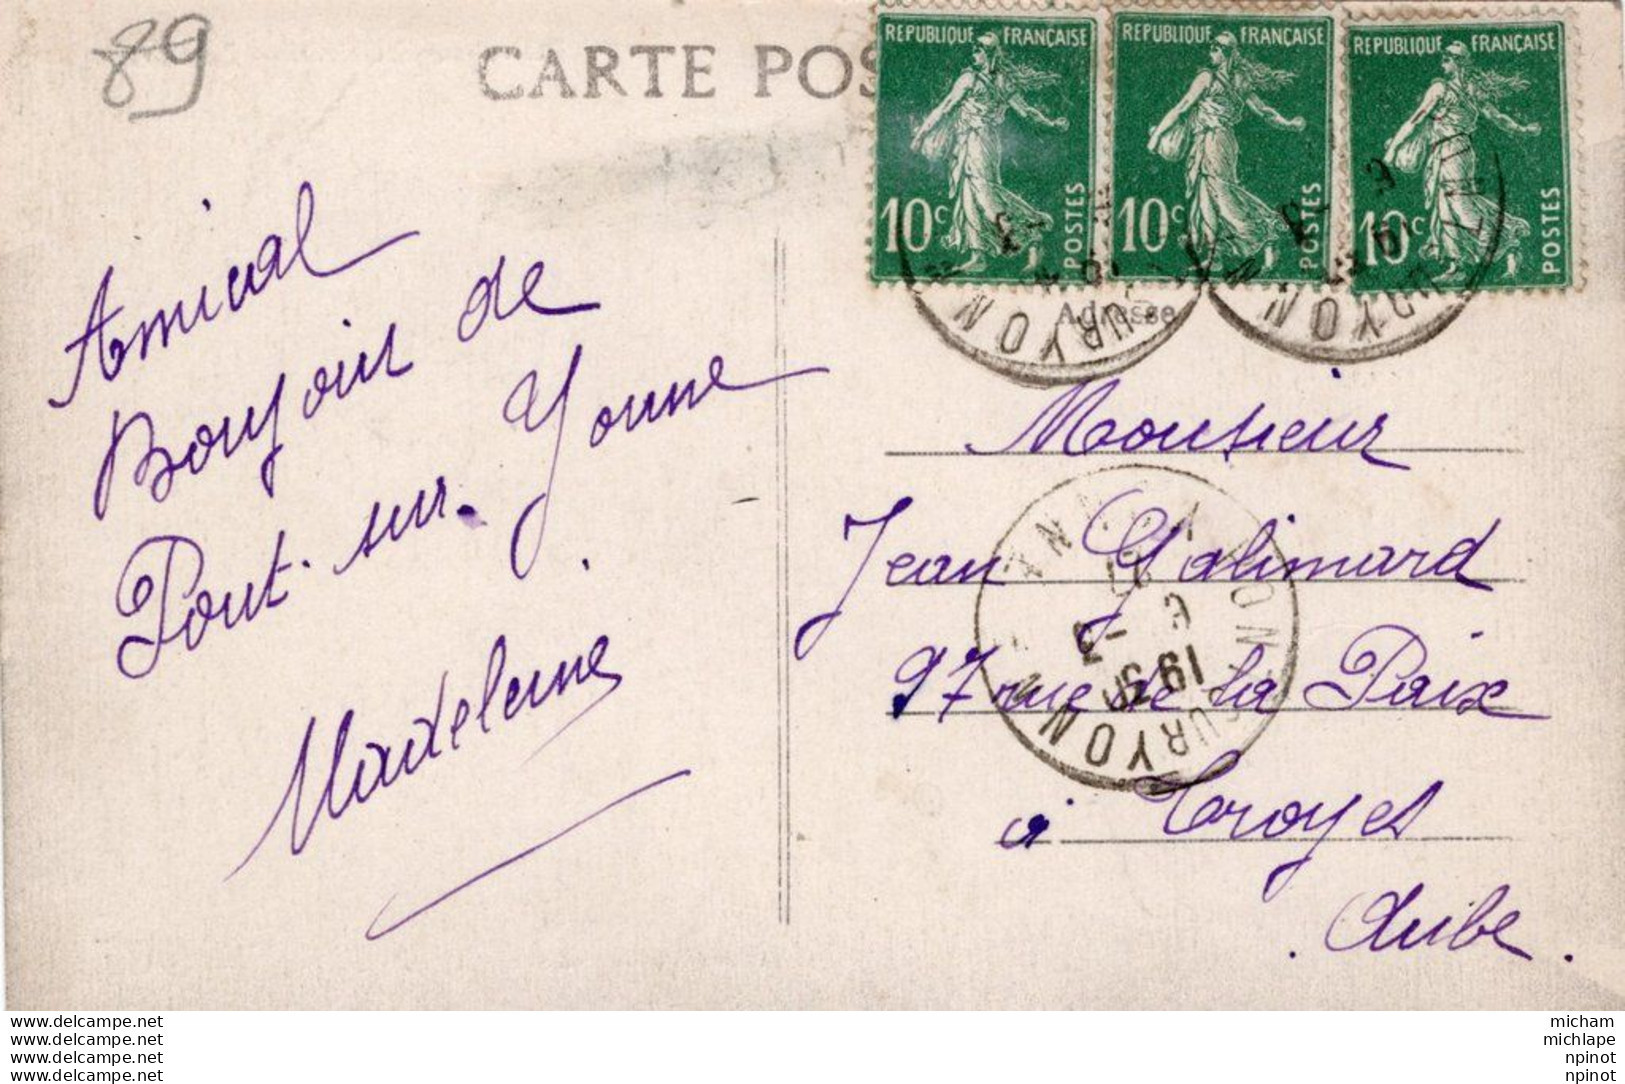 89
CARTE POS
REPUBLIQUE FRANÇAISE
10c POSTES
REPUBLIQUE FRANÇAISE
10c POSTES
REPUBLIQUE FRANÇAISE
10c POSTES
Adresse
Amical
Bonjour de
Pont-sur-Yonne
Madeleine
Monsieur
Jean Galimard
97 rue de la Paix
à Troyes
Aube.
www.delcampe.net
www.delcampe.net
www.delcampe.net
www.delcampe.net
micham
michlape
npinot
npinot